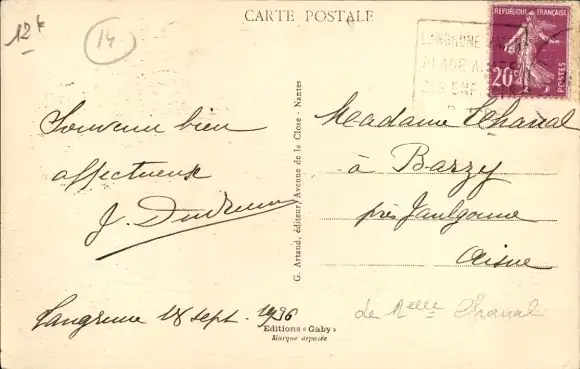 CARTE POSTALE
12f
14
LANGRUNE
PLAGE
REPUBLIQUE FRANÇAISE
20c
POSTES
Souvenir bien
affectueux
J.
Langrune 18 sept. 1936
G. Artaud, éditeur, Avenue de la Close - Nantes
Editions "Gaby"
Marque déposée
Madame Chaval
à Barzy
près Jaulgonne
Aisne
de Melle Chaval